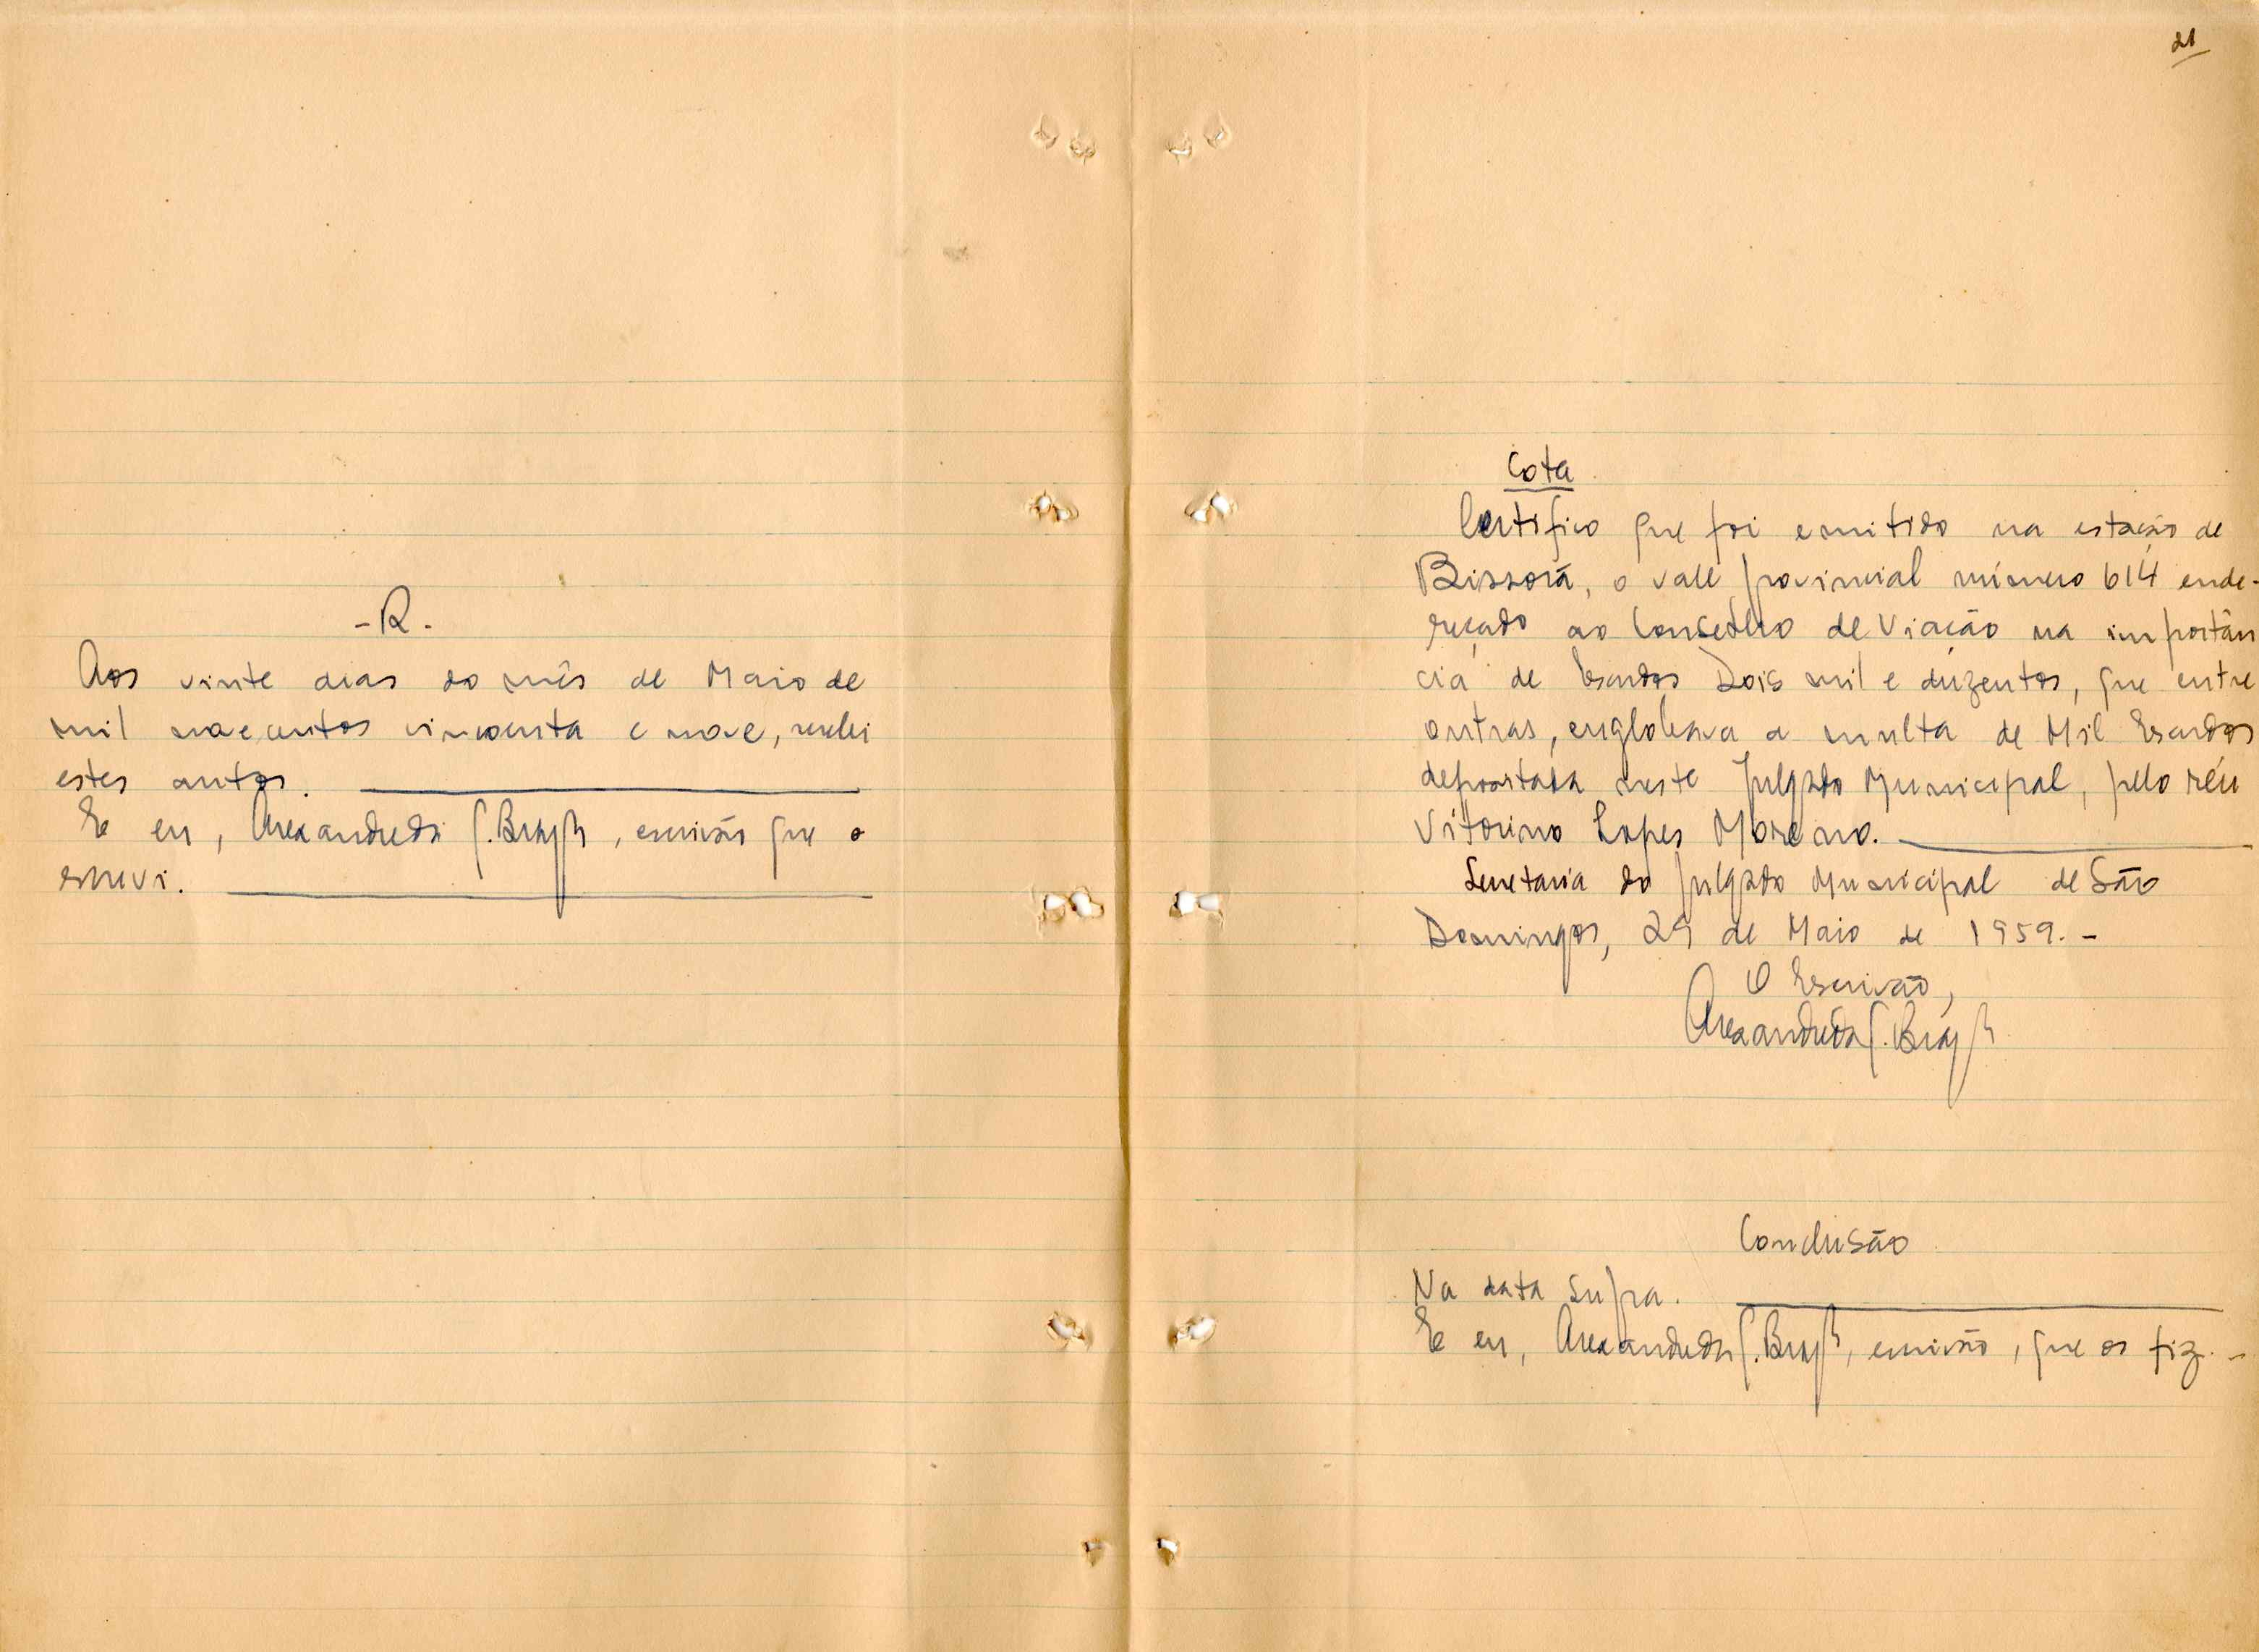 - R -
Aos vinte dias do mês de Maio de
mil novecentos cincoenta e nove, recebi
estes autos.
E eu, , escrivão que o
escrevi.
21
Cota
Certifico que foi emitido na estação de
Bissorã, o vale provincial número 614 ende-
reçado ao Conselho de Viação na importân
cia de Escudos Dois mil e duzentos, que entre
outras, englobava a multa de Mil Escudos
depositada neste Julgado Municipal, pelo réu
Vitorino Lopes Moreno.
Secretaria do Julgado Municipal de São
Domingos, 29 de Maio de 1959. -
O Escrivão,
Conclusão
Na data supra.
E eu, , escrivão, que os fiz. -